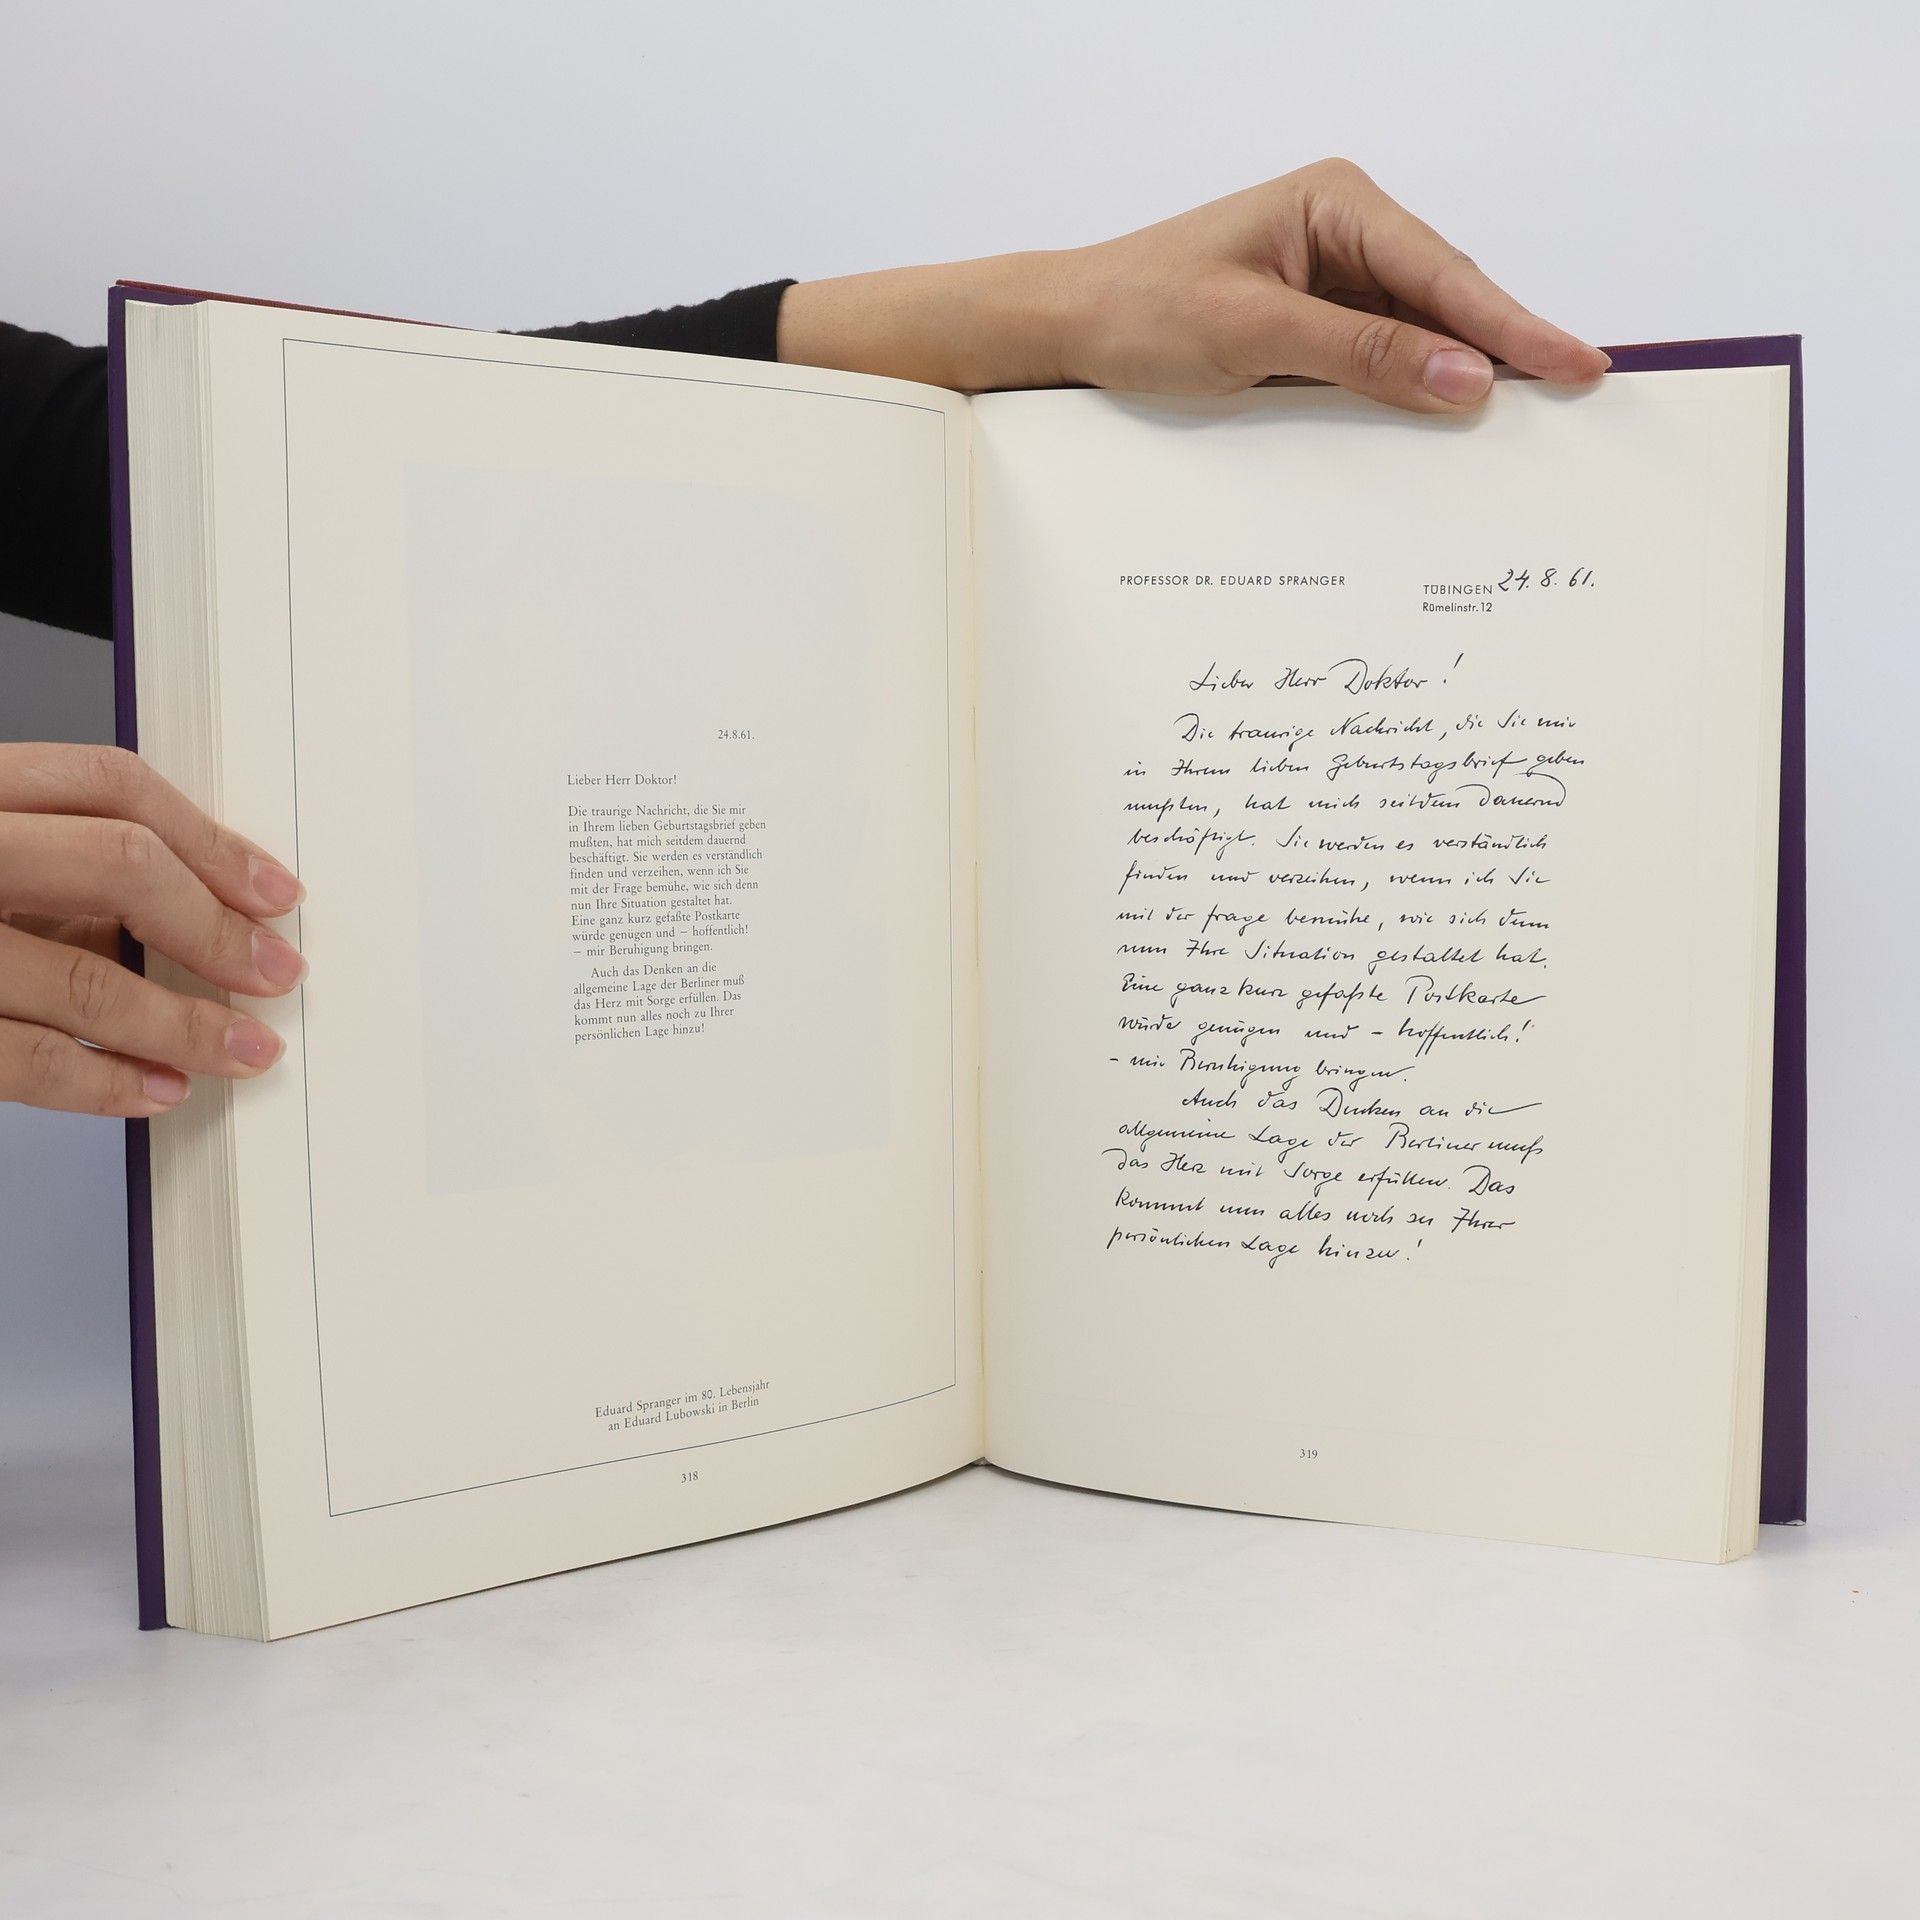 24.8.61.
Lieber Herr Doktor!
Die traurige Nachricht, die Sie mir
in Ihrem lieben Geburtstagsbrief geben
mußten, hat mich seitdem dauernd
beschäftigt. Sie werden es verständlich
finden und verzeihen, wenn ich Sie
mit der Frage bemühe, wie sich denn
nun Ihre Situation gestaltet hat.
Eine ganz kurz gefaßte Postkarte
würde genügen und – hoffentlich!
– mir Beruhigung bringen.
Auch das Denken an die
allgemeine Lage der Berliner muß
das Herz mit Sorge erfüllen. Das
kommt nun alles noch zu Ihrer
persönlichen Lage hinzu!
Eduard Spranger im 80. Lebensjahr
an Eduard Lubowski in Berlin
318
PROFESSOR DR. EDUARD SPRANGER
TÜBINGEN 24. 8. 61.
Rümelinstr. 12
Lieber Herr Doktor!
Die traurige Nachricht, die Sie mir
in Ihrem lieben Geburtstagsbrief geben
mußten, hat mich seitdem dauernd
beschäftigt. Sie werden es verständlich
finden und verzeihen, wenn ich Sie
mit der Frage bemühe, wie sich denn
nun Ihre Situation gestaltet hat.
Eine ganz kurz gefaßte Postkarte
würde genügen und – hoffentlich!
– mir Beruhigung bringen.
Auch das Denken an die
allgemeine Lage der Berliner muß
das Herz mit Sorge erfüllen. Das
kommt nun alles noch zu Ihrer
persönlichen Lage hinzu!
319